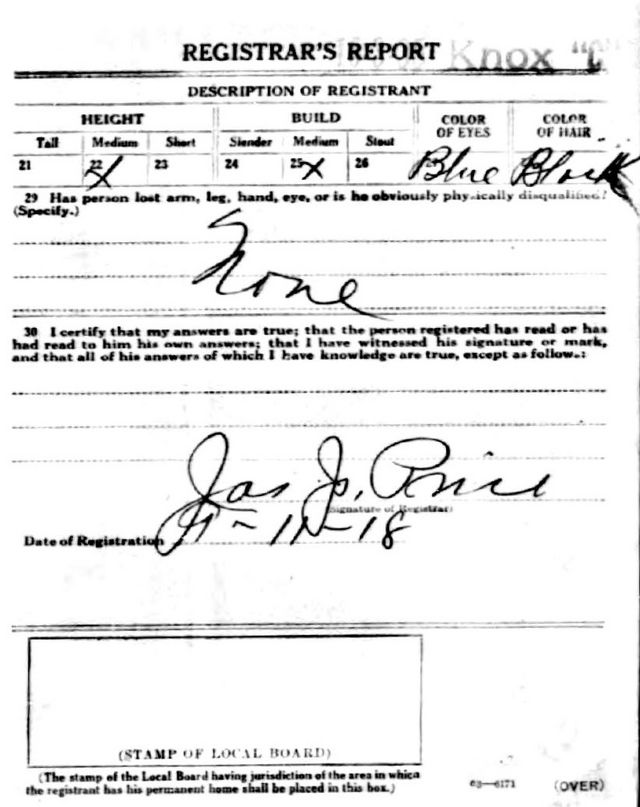 Knox "C"
REGISTRAR'S REPORT
DESCRIPTION OF REGISTRANT
HEIGHT BUILD COLOR OF EYES COLOR OF HAIR
Tall Medium Short Slender Medium Stout
21 22 X 23 24 25 X 26 Blue Black
29 Has person lost arm, leg, hand, eye, or is he obviously physically disqualified?
(Specify.)
None
30 I certify that my answers are true; that the person registered has read or has
had read to him his own answers; that I have witnessed his signature or mark,
and that all of his answers of which I have knowledge are true, except as follows:
Jas J. Price
(Signature of Registrar)
Date of Registration -18
(STAMP OF LOCAL BOARD)
(The stamp of the Local Board having jurisdiction of the area in which
the registrant has his permanent home shall be placed in this box.)
63—6171 (OVER)